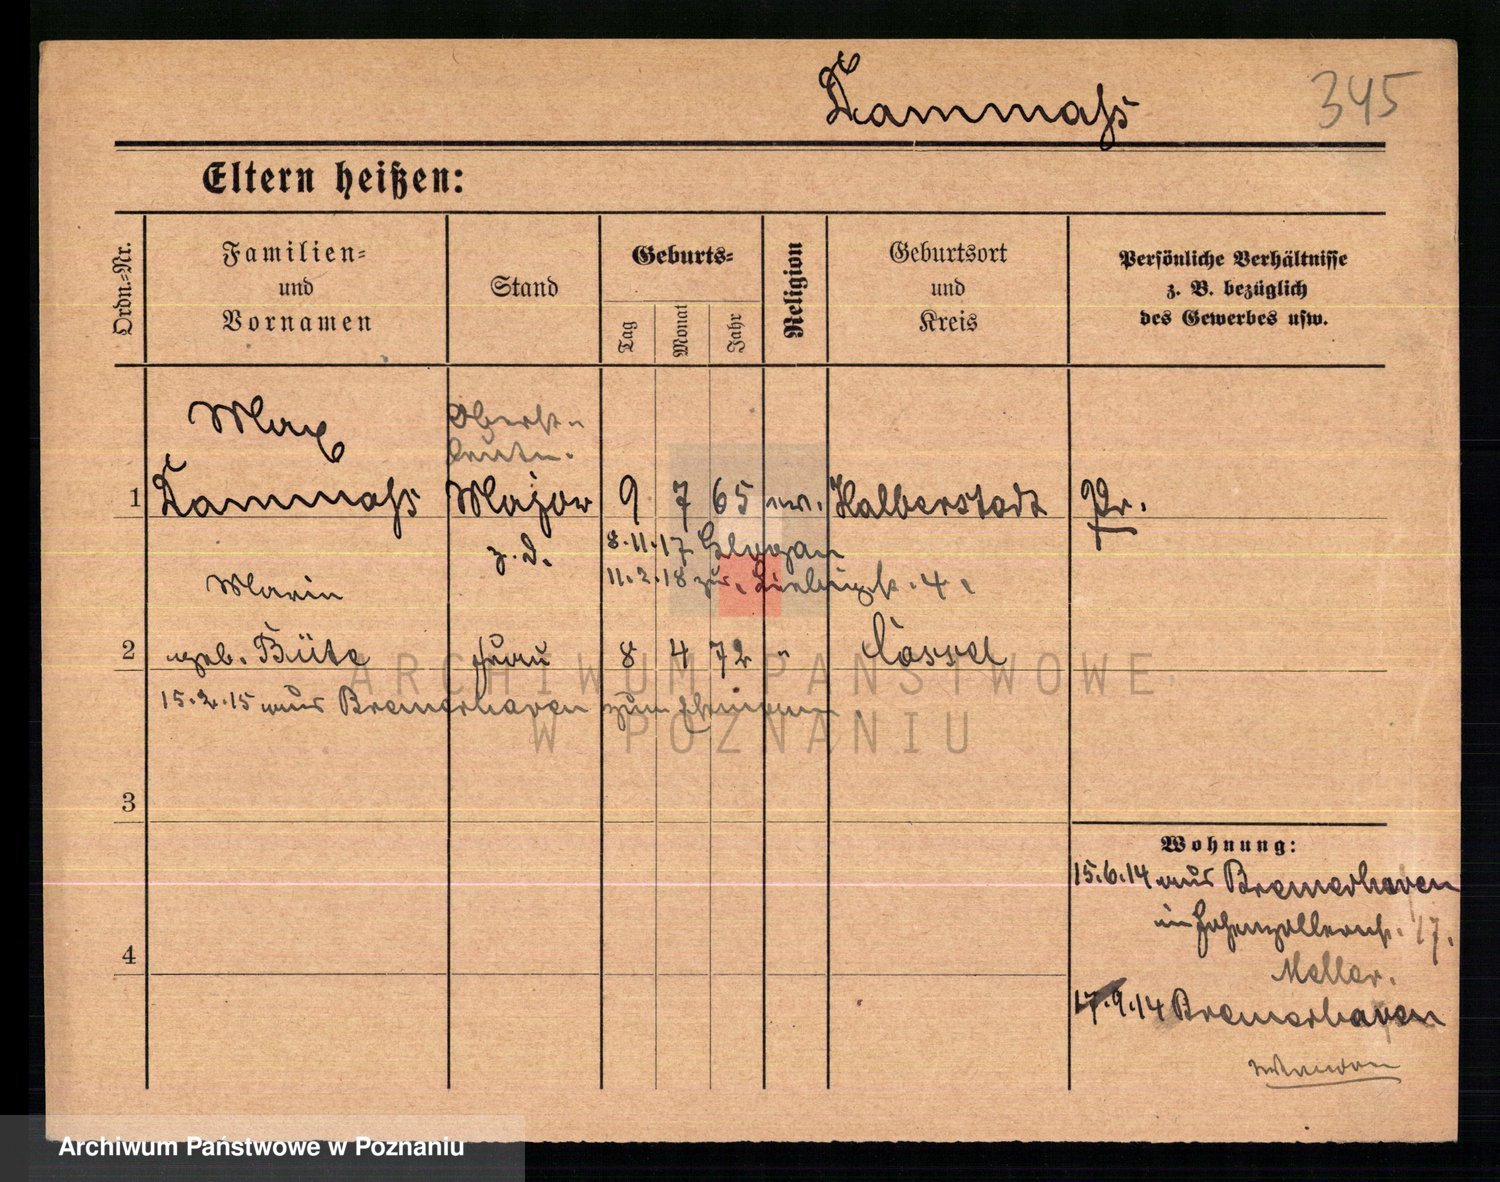 Kammahs
345
Eltern heißen:
Ordn.-Nr.
Familien-
und
Vornamen
Stand
Geburts-
Tag
Monat
Jahr
Religion
Geburtsort
und
Kreis
Persönliche Verhältnisse
z. B. bezüglich
des Gewerbes usw.
Max
Oberst-
leutn.
1 Kammahs Major 9 7 65 ev. Halberstadt Pr.
z. D. 8.11.17 Glogau
11.2.18 zur. Liebigstr. 4.
Marie
2 geb. Büte Frau 8 4 72 " Cassel
15.2.15 aus Bremerhaven zum Ehemann
3
Wohnung:
15.6.14 aus Bremerhaven
in Hohenzollernstr. 17.
4
Meller.
17.9.14 Bremerhaven
ARCHIWUM PAŃSTWOWE
W POZNANIU
Archiwum Państwowe w Poznaniu